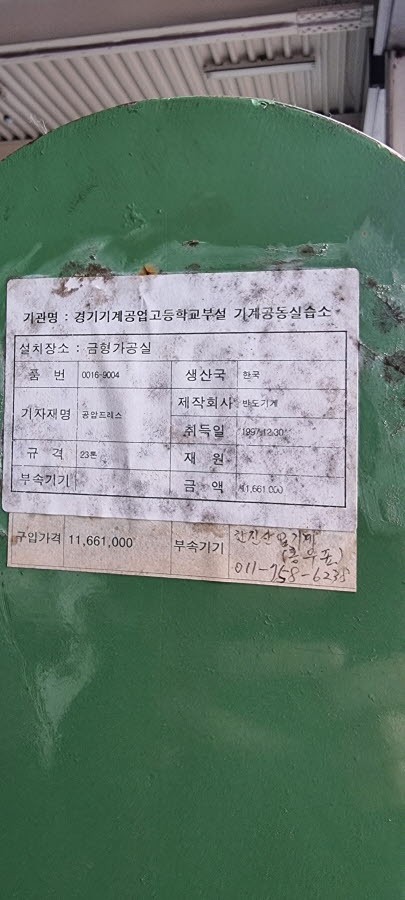 기관명 : 경기기계공업고등학교부설 기계공동실습소
설치장소 : 금형가공실
품 번 0016-9004 생산국 한국
기자재명 공압프레스 제작회사 반도기계
취득일 1997.12.30
규 격 23톤 재 원
부속기기 금 액 11,661,000
구입가격 11,661,000 부속기기
011-758-6235